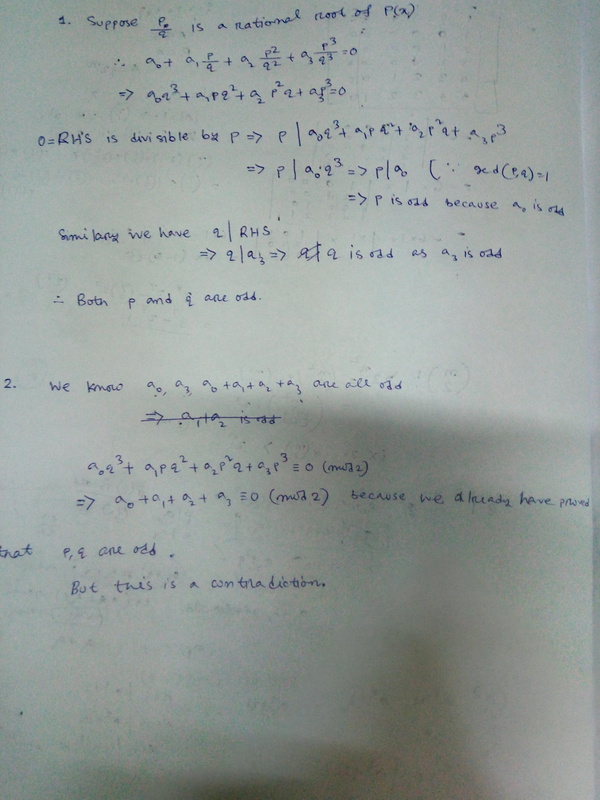 1. Suppose p/q is a rational root of P(x)
∴ a₀ + a₁ p/q + a₂ p²/q² + a₃ p³/q³ = 0
=> a₀q³ + a₁pq² + a₂p²q + a₃p³ = 0
0 = RHS is divisible by p => p | a₀q³ + a₁pq² + a₂p²q + a₃p³
=> p | a₀q³ => p | a₀ (∵ gcd(p,q)=1
=> p is odd because a₀ is odd
Similarly we have q | RHS
=> q | a₃ => q is odd as a₃ is odd
∴ Both p and q are odd.
2. We know a₀, a₃, a₀+a₁+a₂+a₃ are all odd
=> a₁+a₂ is odd
a₀q³ + a₁pq² + a₂p²q + a₃p³ ≡ 0 (mod 2)
=> a₀ + a₁ + a₂ + a₃ ≡ 0 (mod 2) because we already have proved
that p,q are odd.
But this is a contradiction.